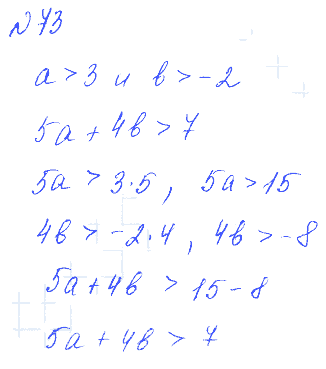 №73
а > 3 и в > -2
5а + 4в > 7
5а > 3·5, 5а > 15
4в > -2·4, 4в > -8
5а + 4в > 15 - 8
5а + 4в > 7